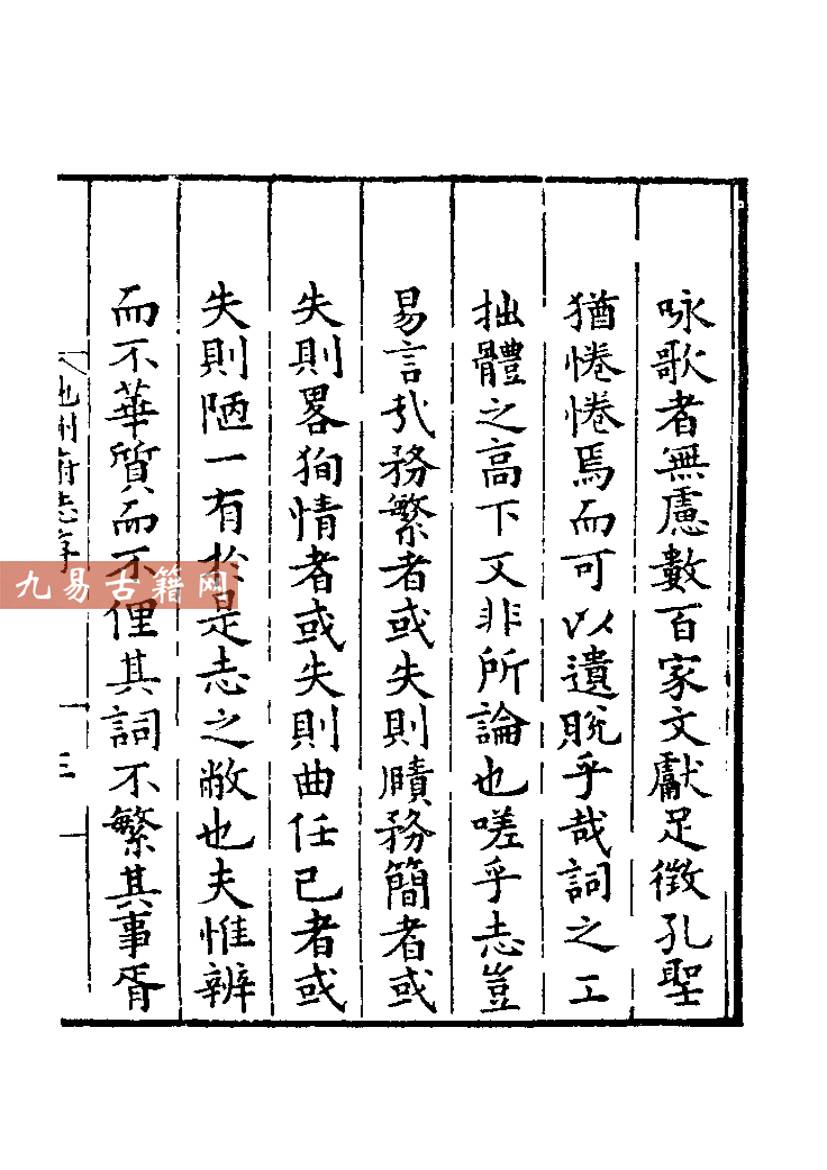 咏歌者無慮數百家文獻足徵孔聖
猶惓惓焉而可以遺脫乎哉詞之工
拙體之高下又非所論也嗟乎志豈
易言哉務繁者或失則贖務簡者或
失則畧狥情者或失則曲任己者或
失則陋一有於是志之敝也夫惟辨
而不華質而不俚其詞不繁其事胥
池州府志序
三
九易古籍网